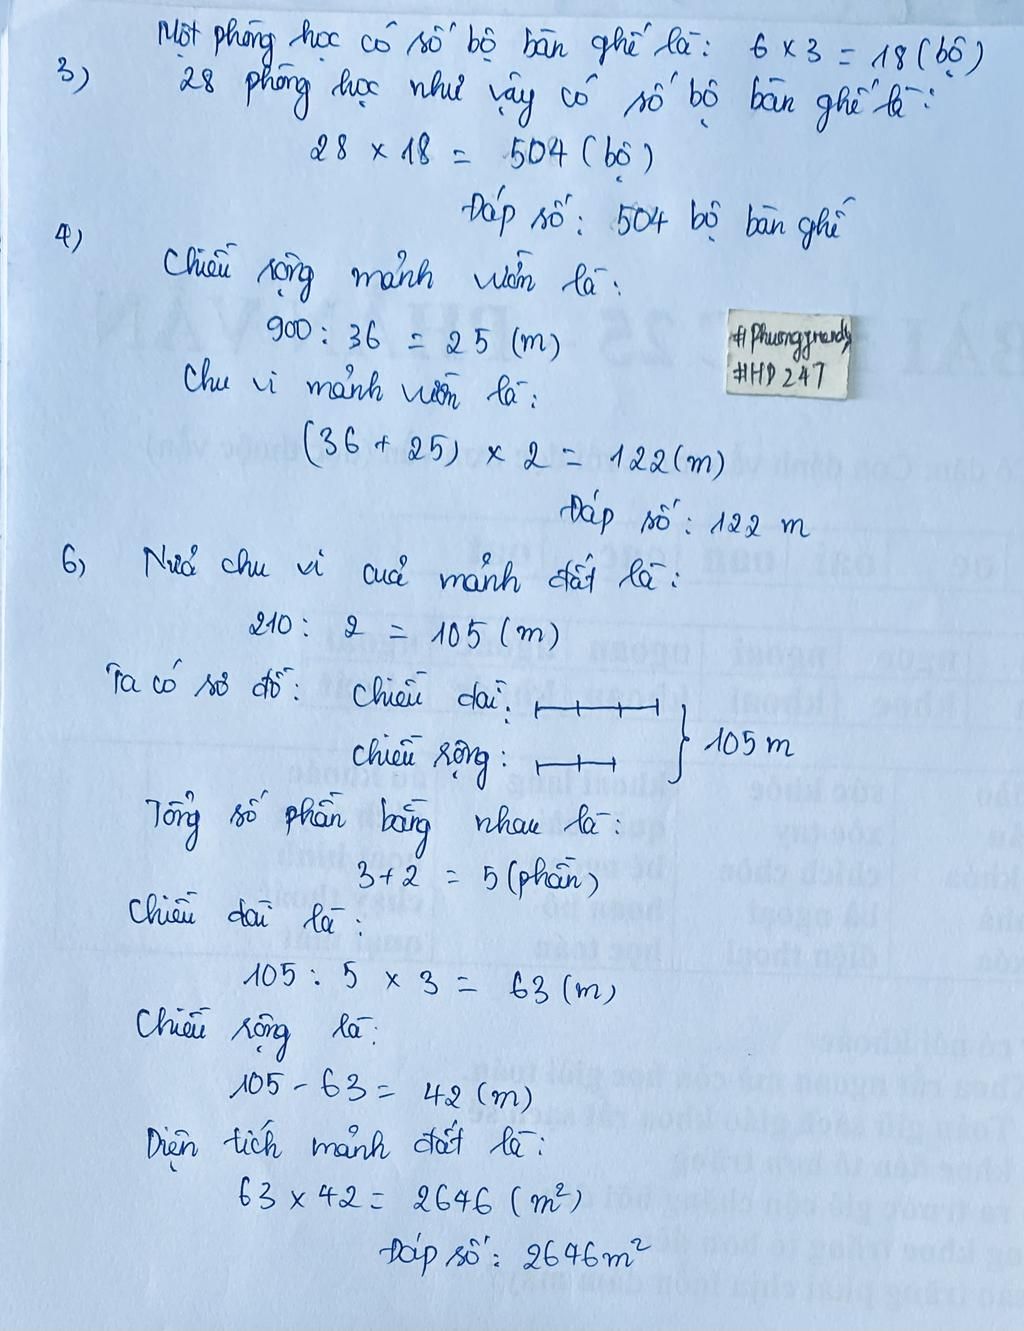 Một phòng học có số bộ bàn ghế là: 6 x 3 = 18 (bộ)
3) 28 phòng học như vậy có số bộ bàn ghế là:
28 x 18 = 504 (bộ)
Đáp số: 504 bộ bàn ghế
4)
Chiều rộng mảnh vườn là:
900 : 36 = 25 (m)
Chu vi mảnh vườn là:
(36 + 25) x 2 = 122 (m)
Đáp số: 122 m
#Phuonggrandy
#HD247
6) Nửa chu vi của mảnh đất là:
210 : 2 = 105 (m)
Ta có sơ đồ: Chiều dài:
Chiều rộng: 105 m
Tổng số phần bằng nhau là:
3+2 = 5 (phần)
Chiều dài là:
105 : 5 x 3 = 63 (m)
Chiều rộng là:
105 - 63 = 42 (m)
Diện tích mảnh đất là:
63 x 42 = 2646 (m²)
Đáp số: 2646m²